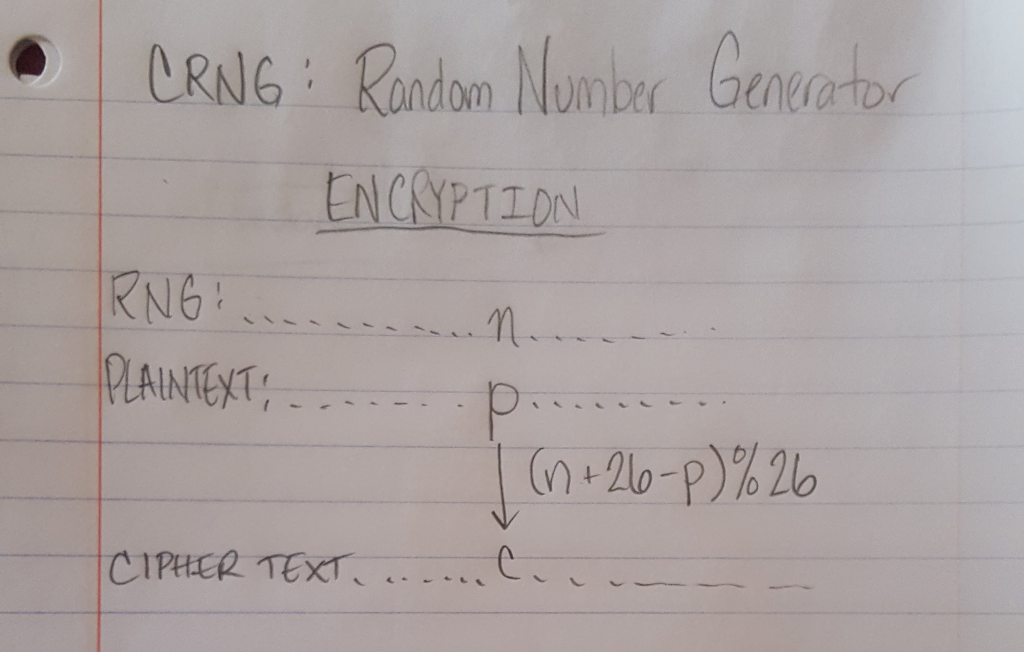 CRNG: Random Number Generator
ENCRYPTION
RNG: ............ n.......
PLAINTEXT: ......... p..........
(n+26-p)%26
CIPHER TEXT......... C. . . _ _ _ _